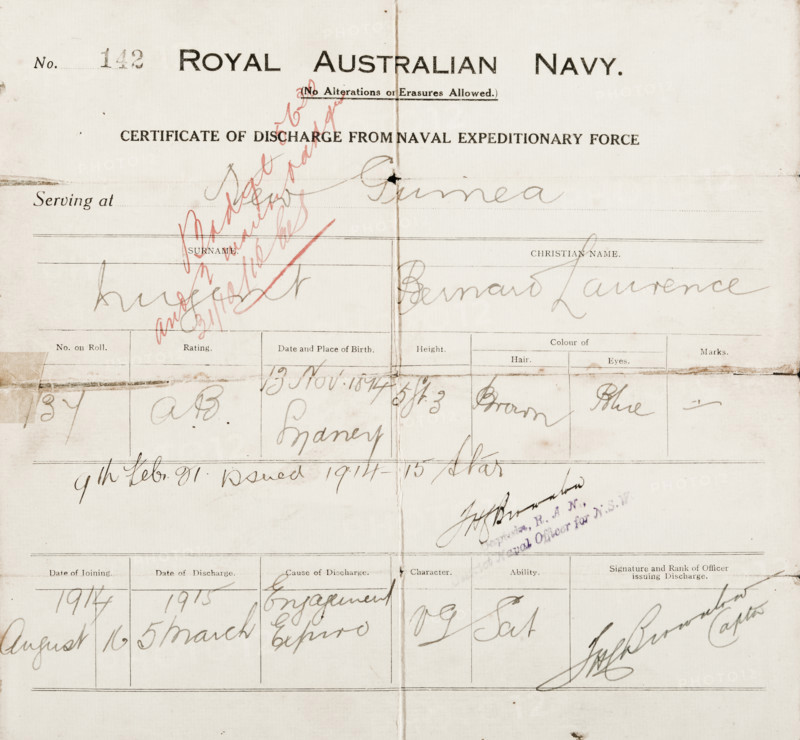 No. 142 ROYAL AUSTRALIAN NAVY.
(No Alterations or Erasures Allowed.)
CERTIFICATE OF DISCHARGE FROM NAVAL EXPEDITIONARY FORCE
Serving at New Guinea
SURNAME. CHRISTIAN NAME.
Nugent Bernard Laurence
No. on Roll. Rating. Date and Place of Birth. Height. Colour of Marks.
Hair. Eyes.
13 Nov. 1894
137 A.B. 5 ft 3 Brown Blue —
Sydney
9th Feb. 21. issued 1914-15 Star
J H L Brownlow
District Naval Officer for N.S.W.
Date of Joining. Date of Discharge. Cause of Discharge. Character. Ability. Signature and Rank of Officer
issuing Discharge.
1914 1915 Engagement
August 16 5 March Expired VG Sat J H L Brownlow
Capt